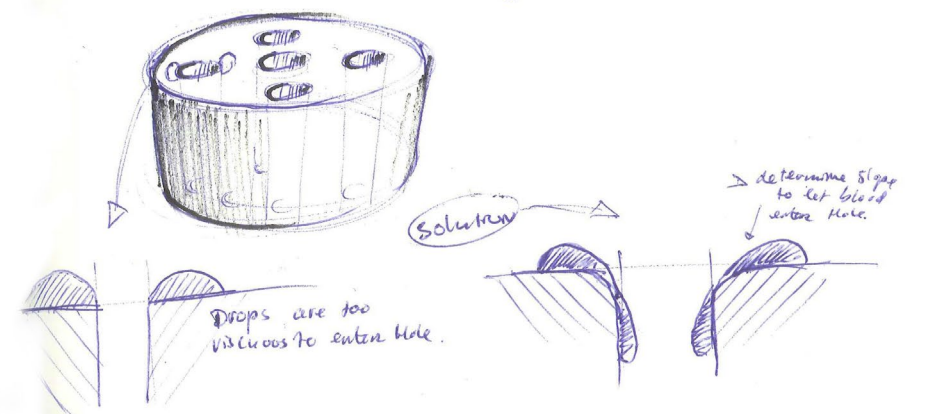 Solution
determine slope
to let blood
enter Hole.
Drops are too
viscuous to enter Hole.